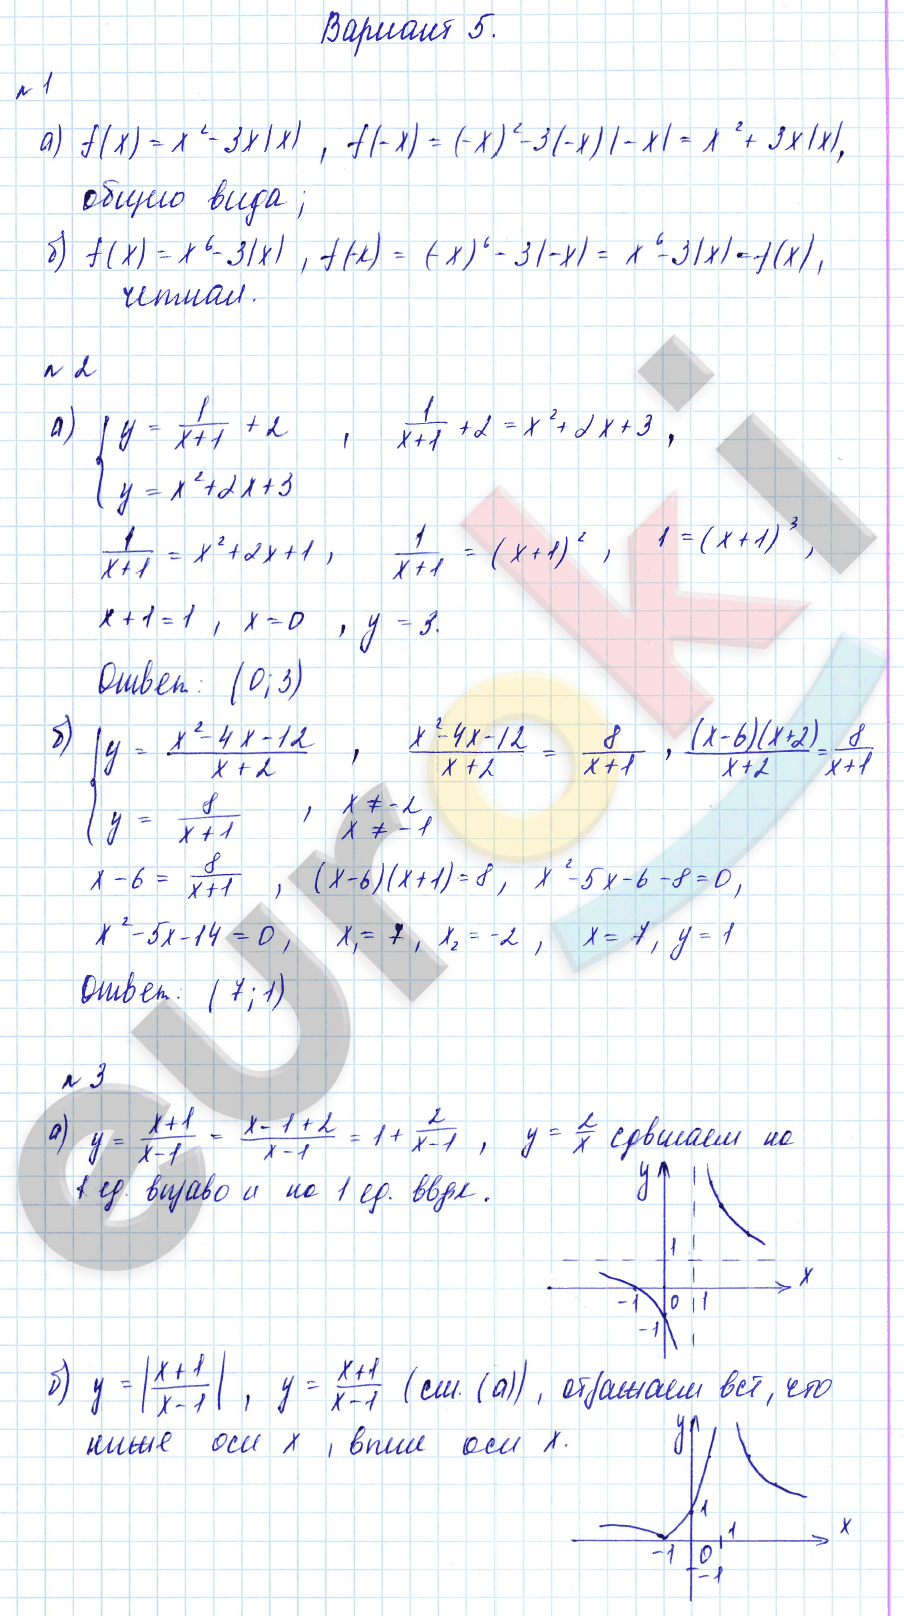 Вариант 5.
№ 1
а) f(x) = x² - 3x|x| , f(-x) = (-x)² - 3(-x)|-x| = x² + 3x|x|,
общего вида;
б) f(x) = x⁶ - 3|x| , f(-x) = (-x)⁶ - 3|-x| = x⁶ - 3|x| = f(x),
четная.
№ 2
а) { y = 1/(x+1) + 2 , 1/(x+1) + 2 = x² + 2x + 3 ,
y = x² + 2x + 3
1/(x+1) = x² + 2x + 1 , 1/(x+1) = (x+1)² , 1 = (x+1)³ ,
x + 1 = 1 , x = 0 , y = 3.
Ответ: (0; 3)
б) { y = (x² - 4x - 12)/(x + 2) , (x² - 4x - 12)/(x + 2) = 8/(x+1) , (x-6)(x+2)/(x+2) = 8/(x+1)
y = 8/(x+1) , x ≠ -2
x ≠ -1
x - 6 = 8/(x+1) , (x-6)(x+1) = 8 , x² - 5x - 6 - 8 = 0,
x² - 5x - 14 = 0 , x₁ = 7 , x₂ = -2 , x = 7 , y = 1
Ответ: (7; 1)
№ 3
а) y = (x+1)/(x-1) = (x-1+2)/(x-1) = 1 + 2/(x-1) , y = 2/x сдвигаем на
1 ед. вправо и на 1 ед. вверх.
y
1
x
-1 0 1
-1
б) y = |(x+1)/(x-1)| , y = (x+1)/(x-1) (см. (а)) , отражаем всё, что
ниже оси x , выше оси x.
y
1
x
-1 0 1
-1
euroki